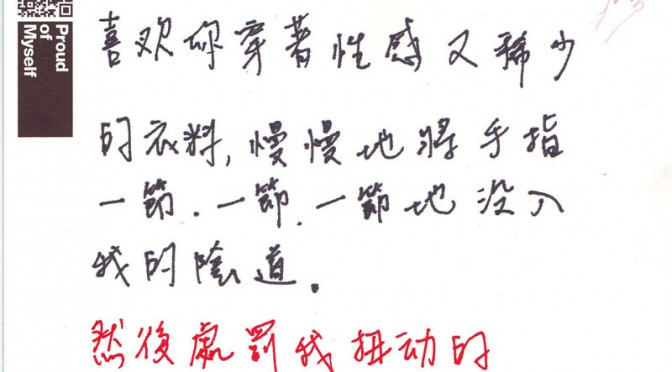 Proud
of
Myself
喜欢你穿著性感又稀少
的衣料,慢慢地將手指
一節.一節.一節地没入
我的陰道.
然後處罰我扭动的